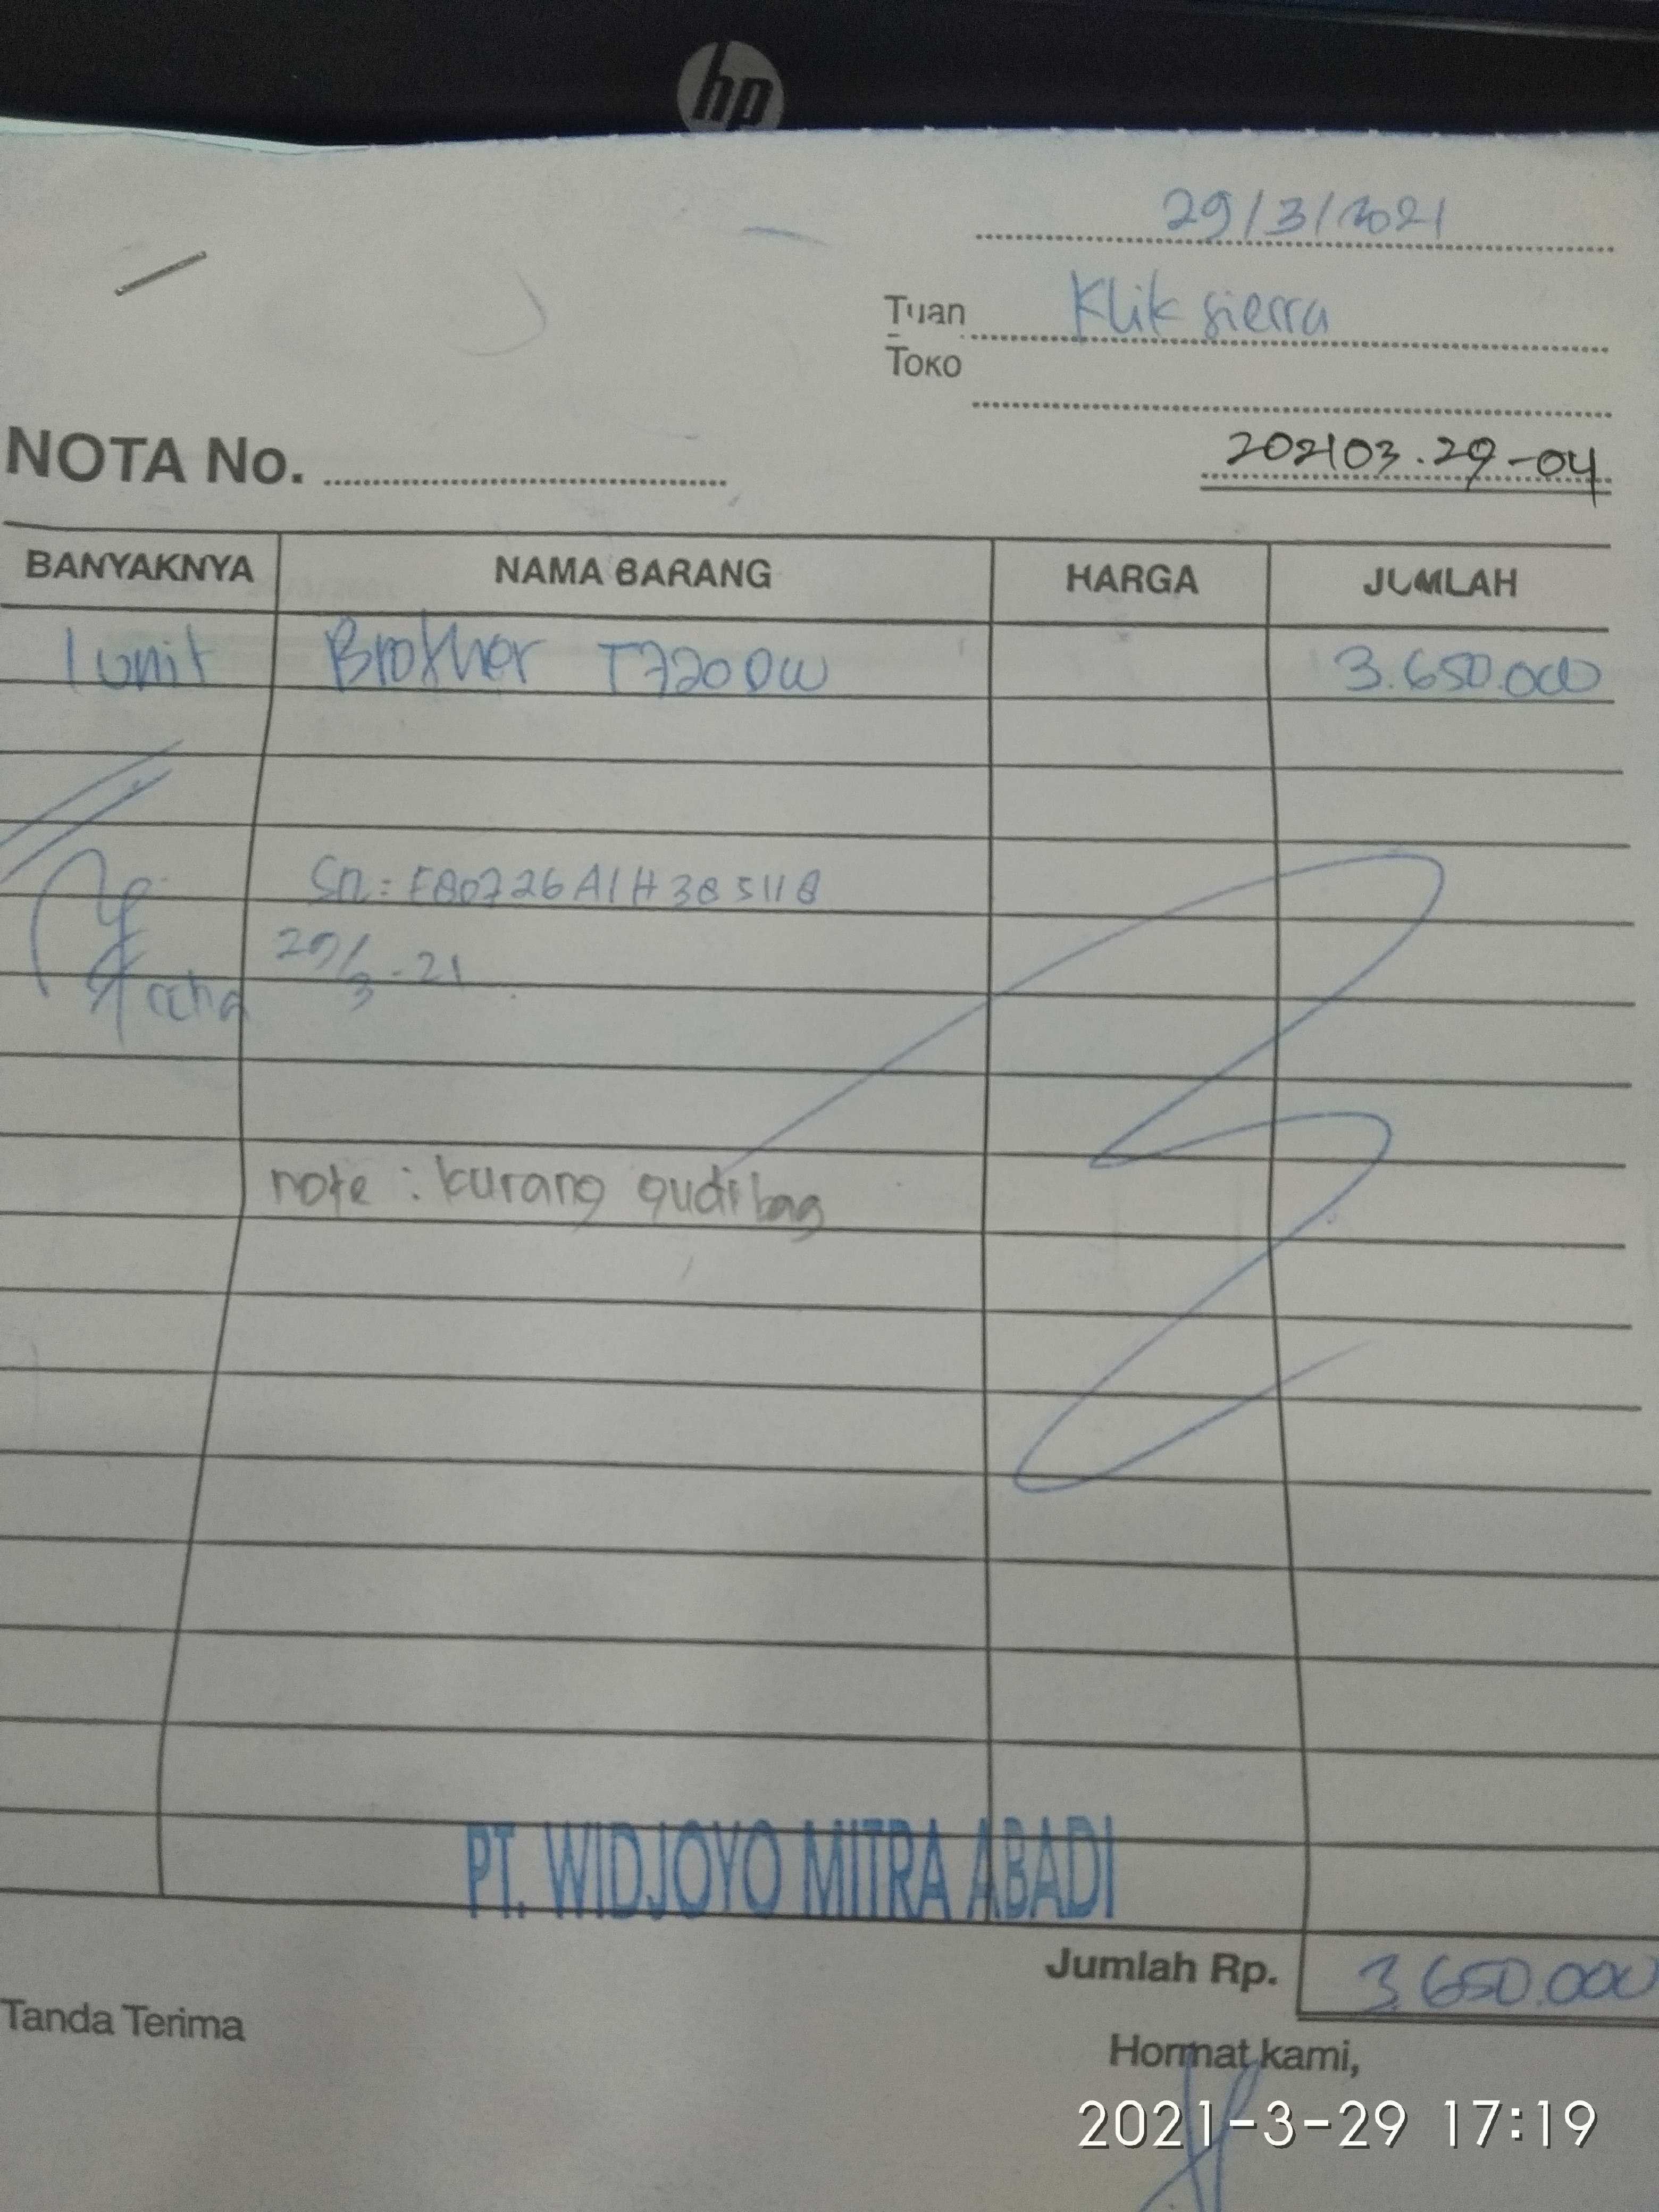 hp
29/3/2021
Tuan Klik sierra
Toko
NOTA No. 202103.29-04
BANYAKNYA NAMA BARANG HARGA JUMLAH
1 unit Brother T720DW 3.650.000
SN: E80726A1H385118
29/3-21
note : kurang gudibag
PT. WIDJOYO MITRA ABADI
Jumlah Rp. 3.650.000
Tanda Terima
Hormat kami,
2021-3-29 17:19